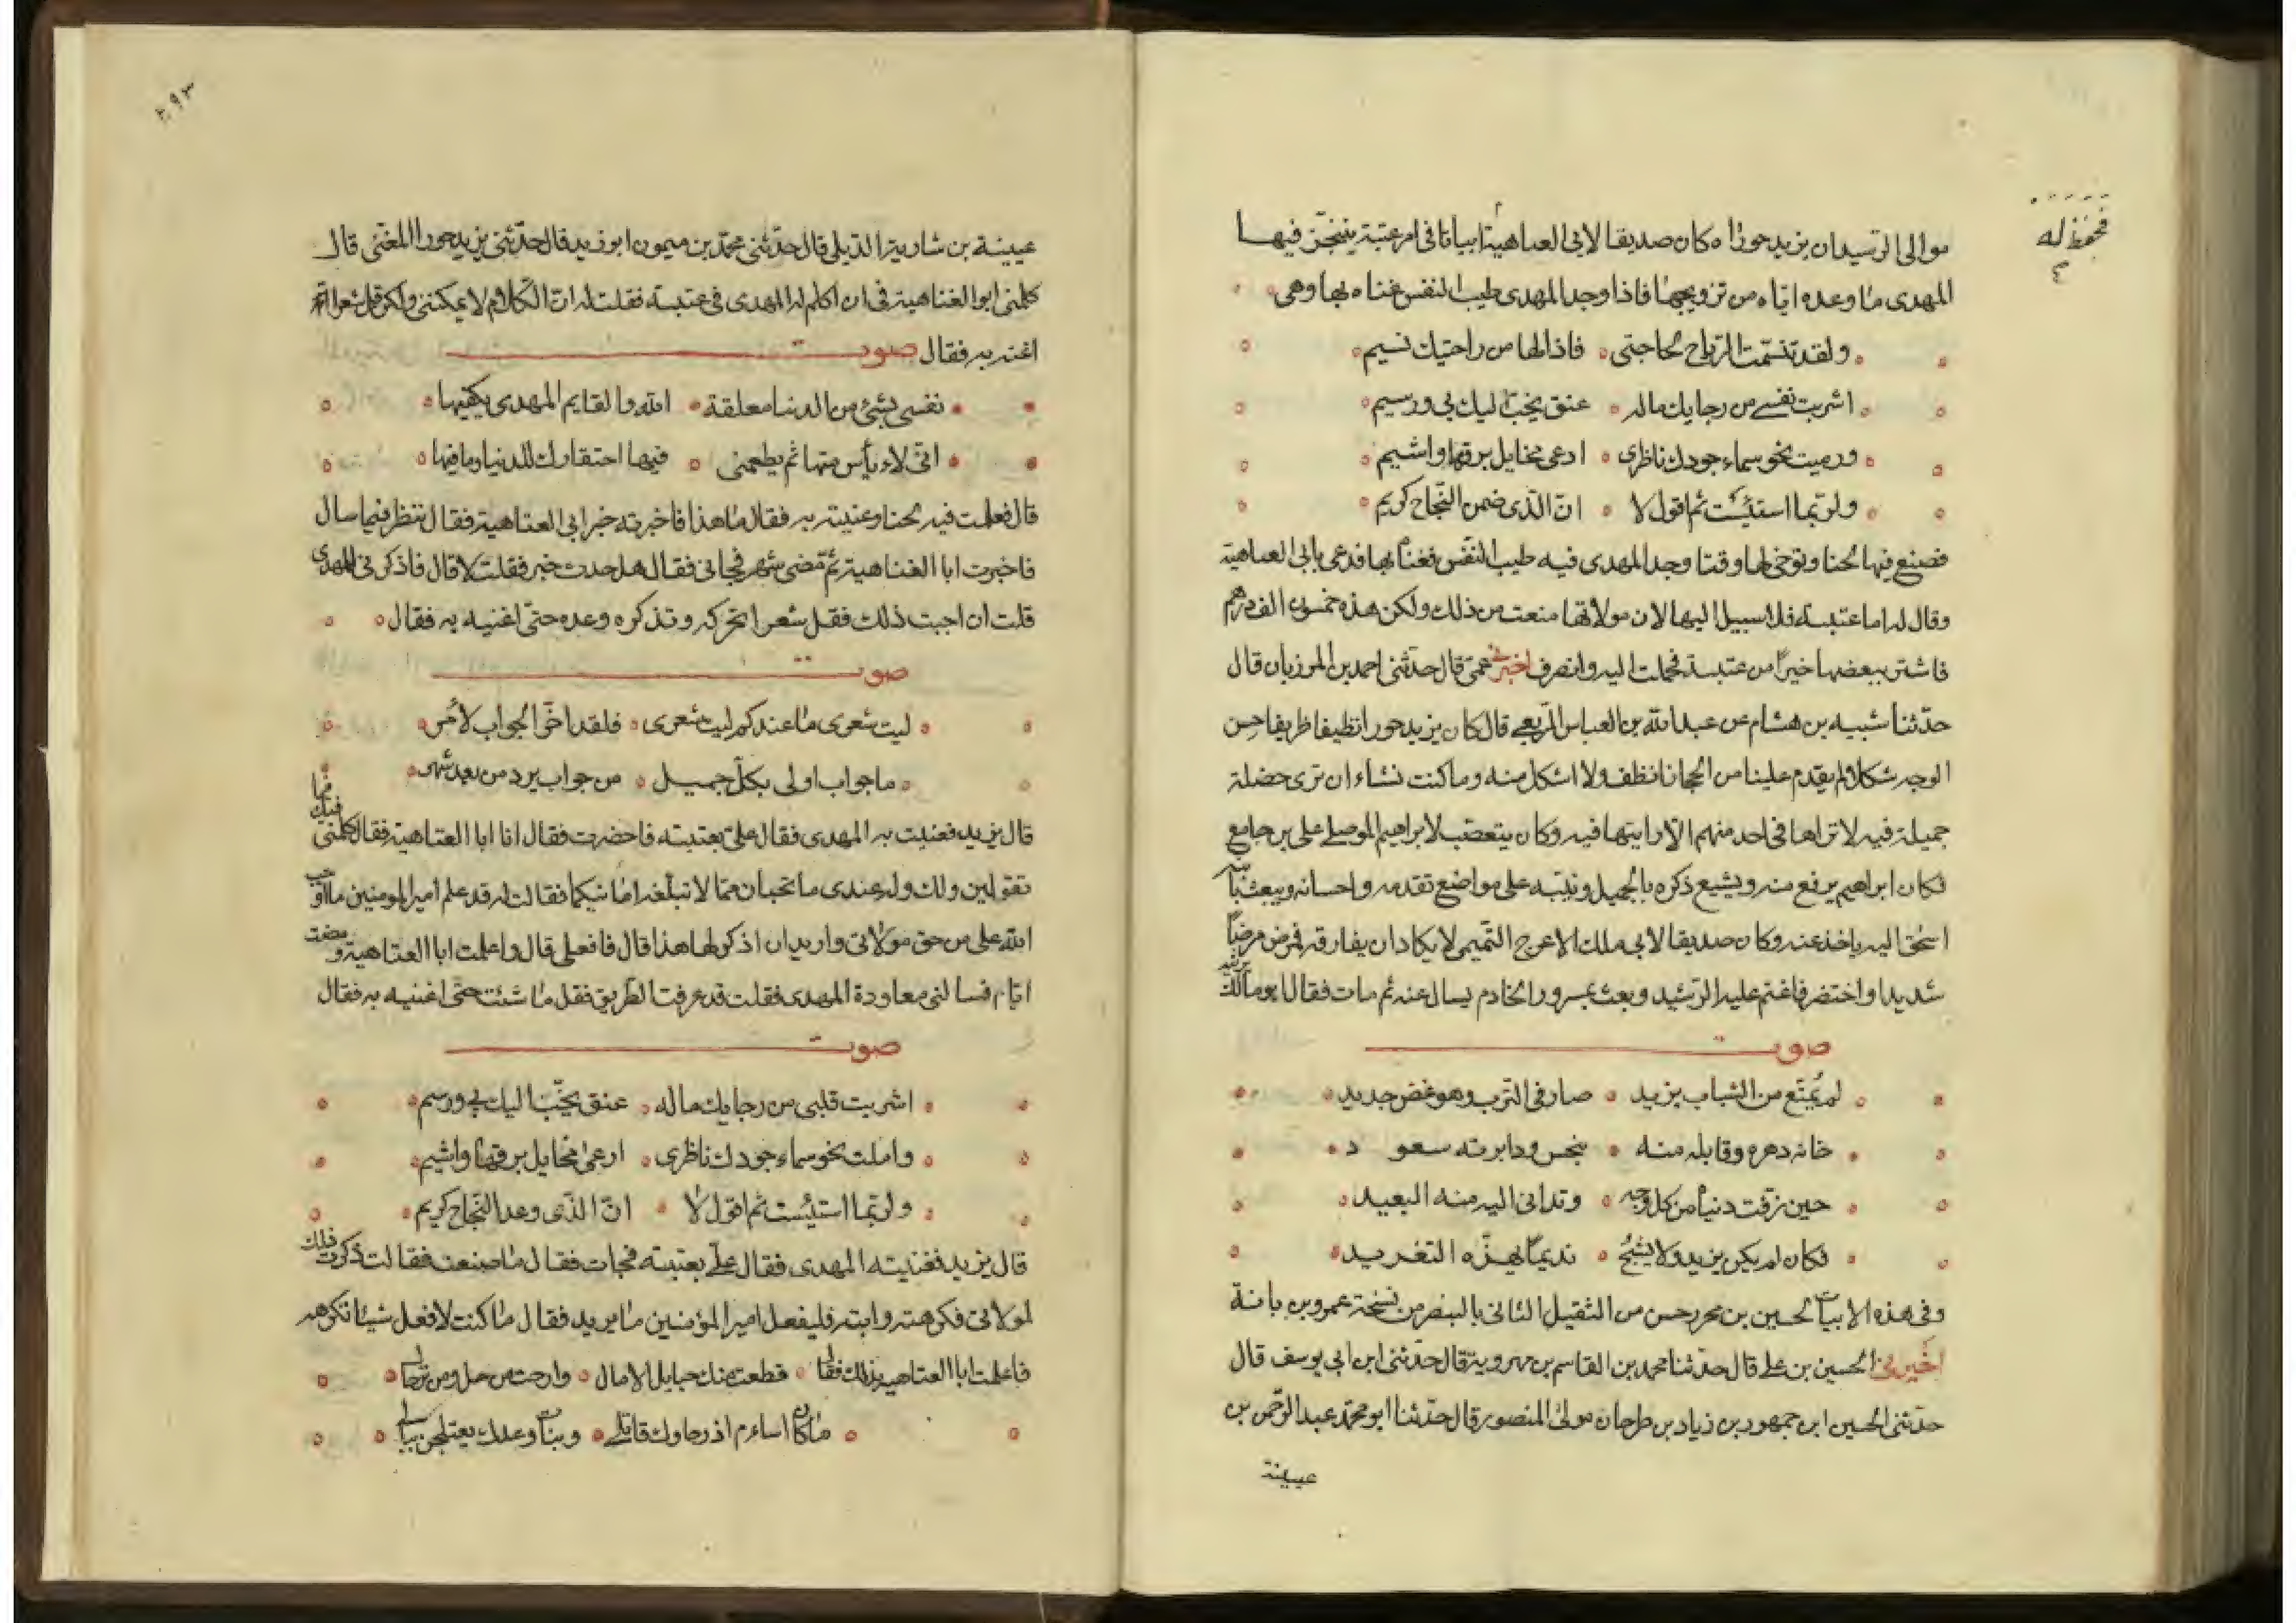 فحفظ له
موالى الرشيد ان يزيد حوراء كان صديقا لابى العتاهية ابياتا فى امر عتبة يتنجز فيها
المهدى ما وعده اياه من تزويجها فاذا وجد المهدى طيب النفس غناه بها وهى
ولقد تنسمت الرياح لحاجتى فاذا لها من راحتيك نسيم
اشربت نفسى من رجايك ماله عنق يخب اليك بى ورسيم
ورميت نحو سماء جودك ناظرى ادعى مخايل برقها واشيم
ولربما استيئست ثم اقول لا ان الذى ضمن النجاح كريم
فصنع فيها لحنا وتوخى لها وقتا وجد المهدى فيه طيب النفس فغناه بها فدعى بابى العتاهية
وقال له اما عتبة فلا سبيل اليها لان مولاتها منعت من ذلك ولكن هذه خمسون الف درهم
فاشتر ببعضها خيرا من عتبة فحملت اليه وانصرف اخبرنى عمى قال حدثنى احمد بن المرزبان قال
حدثنا شيبه بن هشام عن عبد الله بن العباس الربيعى قال كان يزيد حورا نظيفا ظريفا حسن
الوجه شكلا لم يقدم علينا من الحجاز انظف ولا اشكل منه وما كنت تشاء ان ترى خصلة
جميلة فيه لا تراها فى احد منهم الا رايتها فيه وكان يتعصب لابراهيم الموصلى على بن جامع
فكان ابراهيم يرفع منه ويشيع ذكره بالجميل وينبه على مواضع تقدمه واحسانه ويبعث بابنه
اسحق اليه ياخذ عنه وكان صديقا لابى ملك الاعرج التميمى لا يكاد ان يفارقه فمرض مرضا
شديدا واختضر فاغتم عليه الرشيد وبعث بمسرور الخادم يسال عنه ثم مات فقال ابو مالك يرثيه
صوت
لم يمتع من الشباب يزيد صار فى الترب وهو غض جديد
خانه دهره وقابله منه بنحس ودابرته سعود
حين زفت دنياه من كل وجه وتدانى اليه منه البعيد
فكان لم يكن يزيد ولا يشج نديما يهزه التغريد
وفى هذه الابيات لحسين بن محرر حسن من الثقيل الثانى بالبنصر من نسخة عمرو بن بانة
اخبرنى الحسين بن على قال حدثنا محمد بن القاسم بن مهرويه قال حدثنى ابن ابى يوسف قال
حدثنى الحسين ابن جمهور بن زياد بن طرحان مولى المنصور قال حدثنا ابو محمد عبد الرحمن بن
عيينة
٢٩٣
عيينة بن شارية الديلى قال حدثنى محمد بن ميمون ابو زيد قال حدثنى يزيد حورا المغنى قال
كلمنى ابو العتاهية فى ان اكلم له المهدى فى عتبة فقلت له ان الكلام لا يمكننى ولكن قل شعرا
اغنه به فقال صوت
نفسى بشئ من الدنيا معلقة الله والقايم المهدى يكفيها
انى لاءيأس منها ثم يطعمنى فيها احتقارك للدنيا وما فيها
قال فعلمت فيه لحنا وغنيته به فقال ما هذا فاخبرته خبر ابى العتاهية فقال ننظر فيما سال
فاخبرت ابا العتاهية ثم مضى شهر فجانى فقال هل حدث خبر فقلت لا قال فاذكرنى للمهدى
قلت ان احببت ذلك فقل شعرا تحركه وتذكره وعده حتى اغنيه به فقال
صوت
ليت شعرى ما عندكم ليت شعرى فلقد اخر الجواب لامر
ما جواب اولى بكل جميل من جواب يرد من بعد شهر
قال يزيد فغنيت به المهدى فقال على بعتبة فاحضرت فقال ان ابا العتاهية كلمنى فيك فما
تقولين ولك وله عندى ما تحبان مما لا تبلغه امانيكما فقالت له قد علم امير المومنين ما اوجب
الله على من حق مولاتى واريد ان اذكر لها هذا قال فافعلى قال واعلمت ابا العتاهية ومضت
ايام فسالنى معاودة المهدى فقلت قد عرفت الطريق فقل ما شئت حتى اغنيه به فقال
صوت
اشربت قلبى من رجايك ماله عنق يخب اليك بى ورسم
واملت نحو سماء جودك ناظرى ارعى مخايل برقها واشيم
ولربما استيئست ثم اقول لا ان الذى وعد النجاح كريم
قال يزيد فغنيته المهدى فقال على بعتبة فجات فقال ما صنعت فقالت ذكرت ذلك
لمولاتى فكرهته وابته فليفعل امير المؤمنين ما يريد فقال ما كنت لافعل شيئا تكرهه
فاعلمت ابا العتاهية بذلك فقال قطعت منك حبايل الامال وارحت من حل ومن ترحال
ما كان اشاءم اذ رجاوك قاتلى وبنات وعدك يعتلجن ببالى